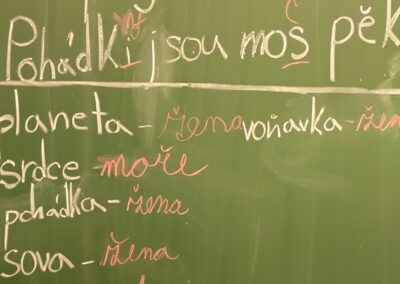 Pohádky jsou moc pěk
planeta - žena voňavka - žen
srdce - moře
pohádka - žena
sova - žena